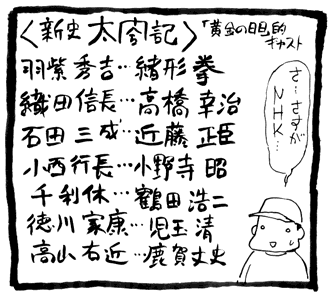 〈新史 太閤記〉「黄金の日日」的キャスト
羽紫秀吉…緒形拳
織田信長…高橋幸治
石田三成…近藤正臣
小西行長…小野寺昭
千利休…鶴田浩二
徳川家康…児玉清
高山右近…鹿賀丈史
さ…さすが
NHK…